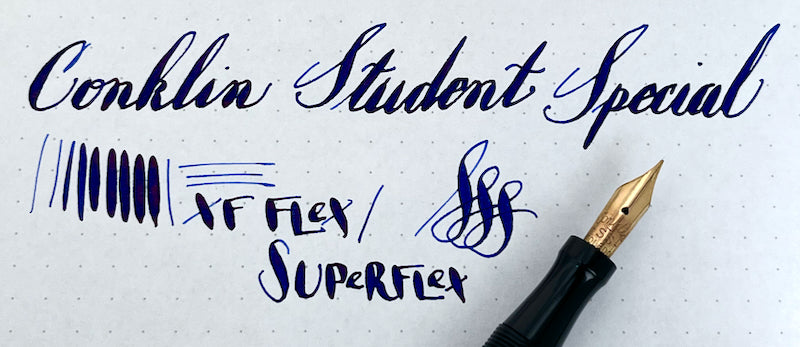 Conklin Student Special
XF FLeX /
SUPeRFLeX